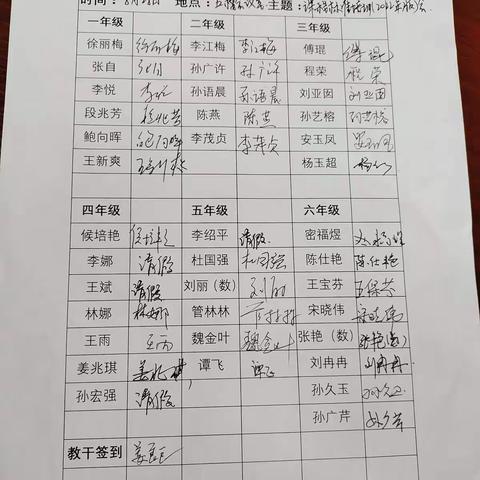 时间：8月28日 地点：五楼会议室 主题：课程标准培训(2022年版)会
一年级 二年级 三年级
徐丽梅 徐丽梅 李江梅 李江梅 傅琨 傅琨
张自 张自 孙广许 孙广许 程荣 程荣
李悦 李悦 孙语晨 孙语晨 刘亚囡 刘亚囡
段兆芳 段兆芳 陈燕 陈燕 孙艺榕 孙艺榕
鲍向晖 鲍向晖 李茂贞 李茂贞 安玉凤 安玉凤
王新爽 王新爽 杨玉超
四年级 五年级 六年级
候培艳 候培艳 李绍平 请假 密福煜
李娜 请假 杜国强 杜国强 陈仕艳 陈仕艳
王斌 请假 刘丽（数） 刘丽 王宝芬 王宝芬
林娜 林娜 管林林 管林林 宋晓伟 宋晓伟
王雨 王雨 魏金叶 魏金叶 张艳（数） 张艳(数)
姜兆琪 姜兆琪 谭飞 谭飞 刘冉冉 刘冉冉
孙宏强 请假 孙久玉 孙久玉
孙广芹 孙广芹
教干签到